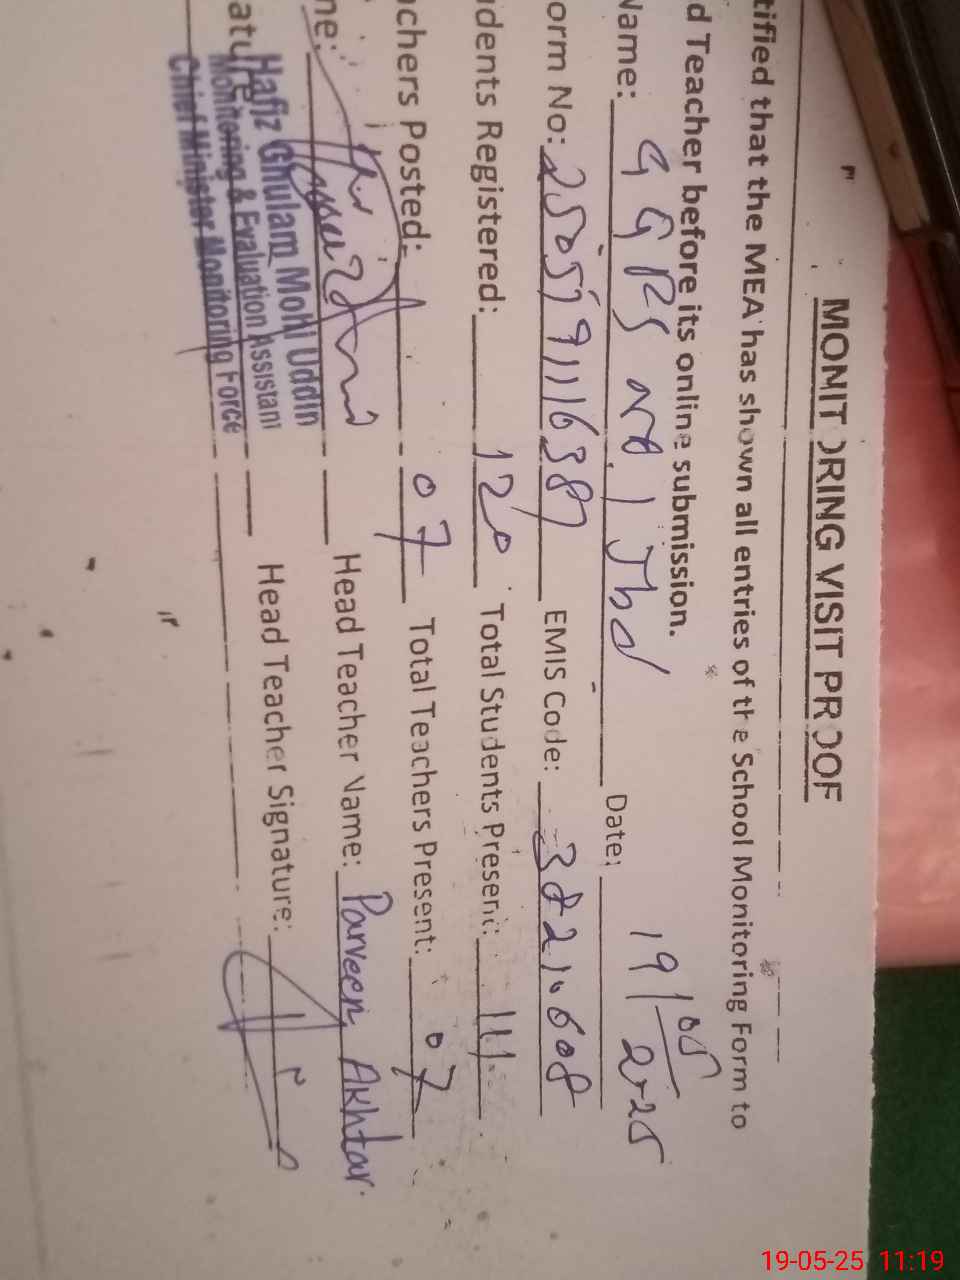 MONITORING VISIT PROOF
tified that the MEA has shown all entries of the School Monitoring Form to
d Teacher before its online submission.
Name: GGPS No 1 Date: 19/05/2025
orm No: EMIS Code: 38210608
dents Registered: 120 Total Students Present: 111
chers Posted: 07 Total Teachers Present: 07
me: Head Teacher Name: Parveen Akhtar.
ature Head Teacher Signature:
Hafiz Ghulam Mohi Uddin
Monitoring & Evaluation Assistant
Chief Minister Monitoring Force
19-05-25 11:19